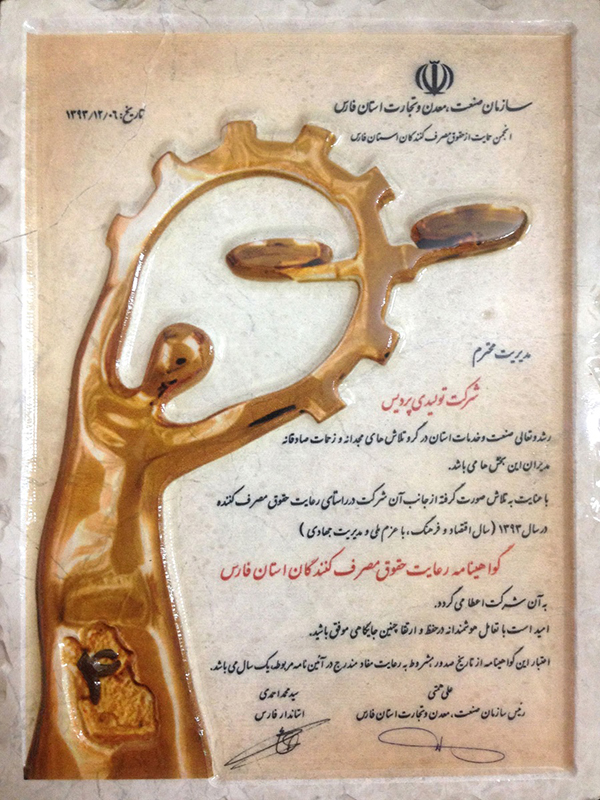 سازمان صنعت، معدن و تجارت استان فارس
تاریخ: ۱۳۹۳/۱۲/۰۶
انجمن حمایت از حقوق مصرف کنندگان استان فارس
مدیریت محترم
شرکت تولیدی پردیس
رشد و تعالی صنعت و خدمات استان در گرو تلاش های مجدانه و زحمات صادقانه
مدیران این بخش ها می باشد.
با عنایت به تلاش صورت گرفته از جانب آن شرکت در راستای رعایت حقوق مصرف کننده
در سال ۱۳۹۳ ( سال اقتصاد و فرهنگ، با عزم ملی و مدیریت جهادی )
گواهینامه رعایت حقوق مصرف کنندگان استان فارس
به آن شرکت اعطا می گردد.
امید است با تعامل هوشمندانه در حفظ و ارتقا چنین جایگاهی موفق باشید.
اعتبار این گواهینامه از تاریخ صدور بشروط به رعایت مفاد مندرج در آئین نامه مربوطه، یک سال می باشد.
علی همتی
رئیس سازمان صنعت، معدن و تجارت استان فارس
سید محمد احمدی
استاندار فارس